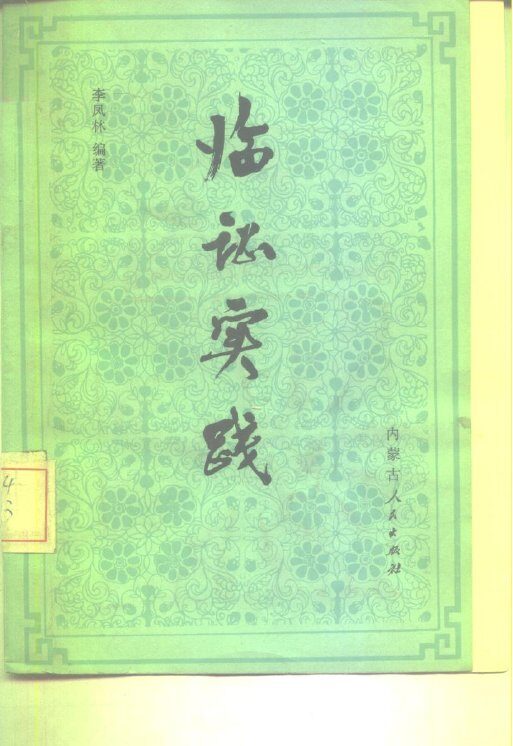 李凤林 编著
临证实践
内蒙古人民出版社
4